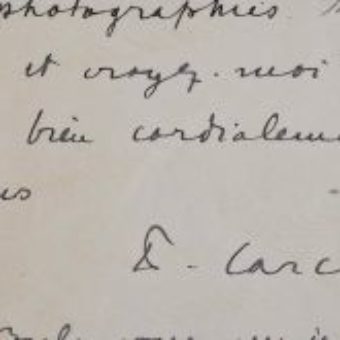 photographies
et croyez-moi
bien cordialem
us
F. Carc